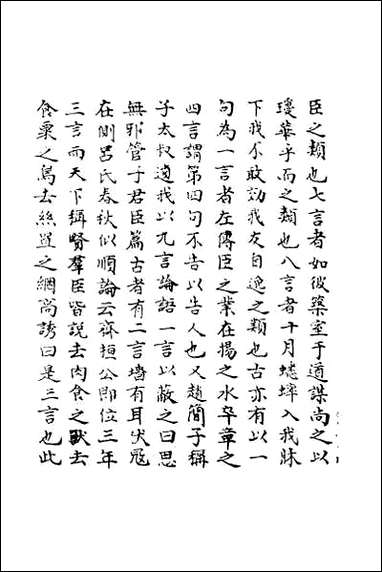 臣之類也七言者如彼築室于道謀尚之以
瓊華乎而之類也八言者十月蟋蟀入我牀
下我不敢効我友自逸之類也古亦有以一
句為一言者左傳臣之業在揚之水卒章之
四言謂第四句不告以告人也又趙簡子稱
子太叔遺我以九言論語一言以蔽之曰思
無邪管子君臣篇古者有二言墻有耳伏冦
在側呂氏春秋似順論云齊桓公即位三年
三言而天下稱賢羣臣皆說去肉食之獸去
食粟之鳥去絲罝之網尚誘曰是三言也此